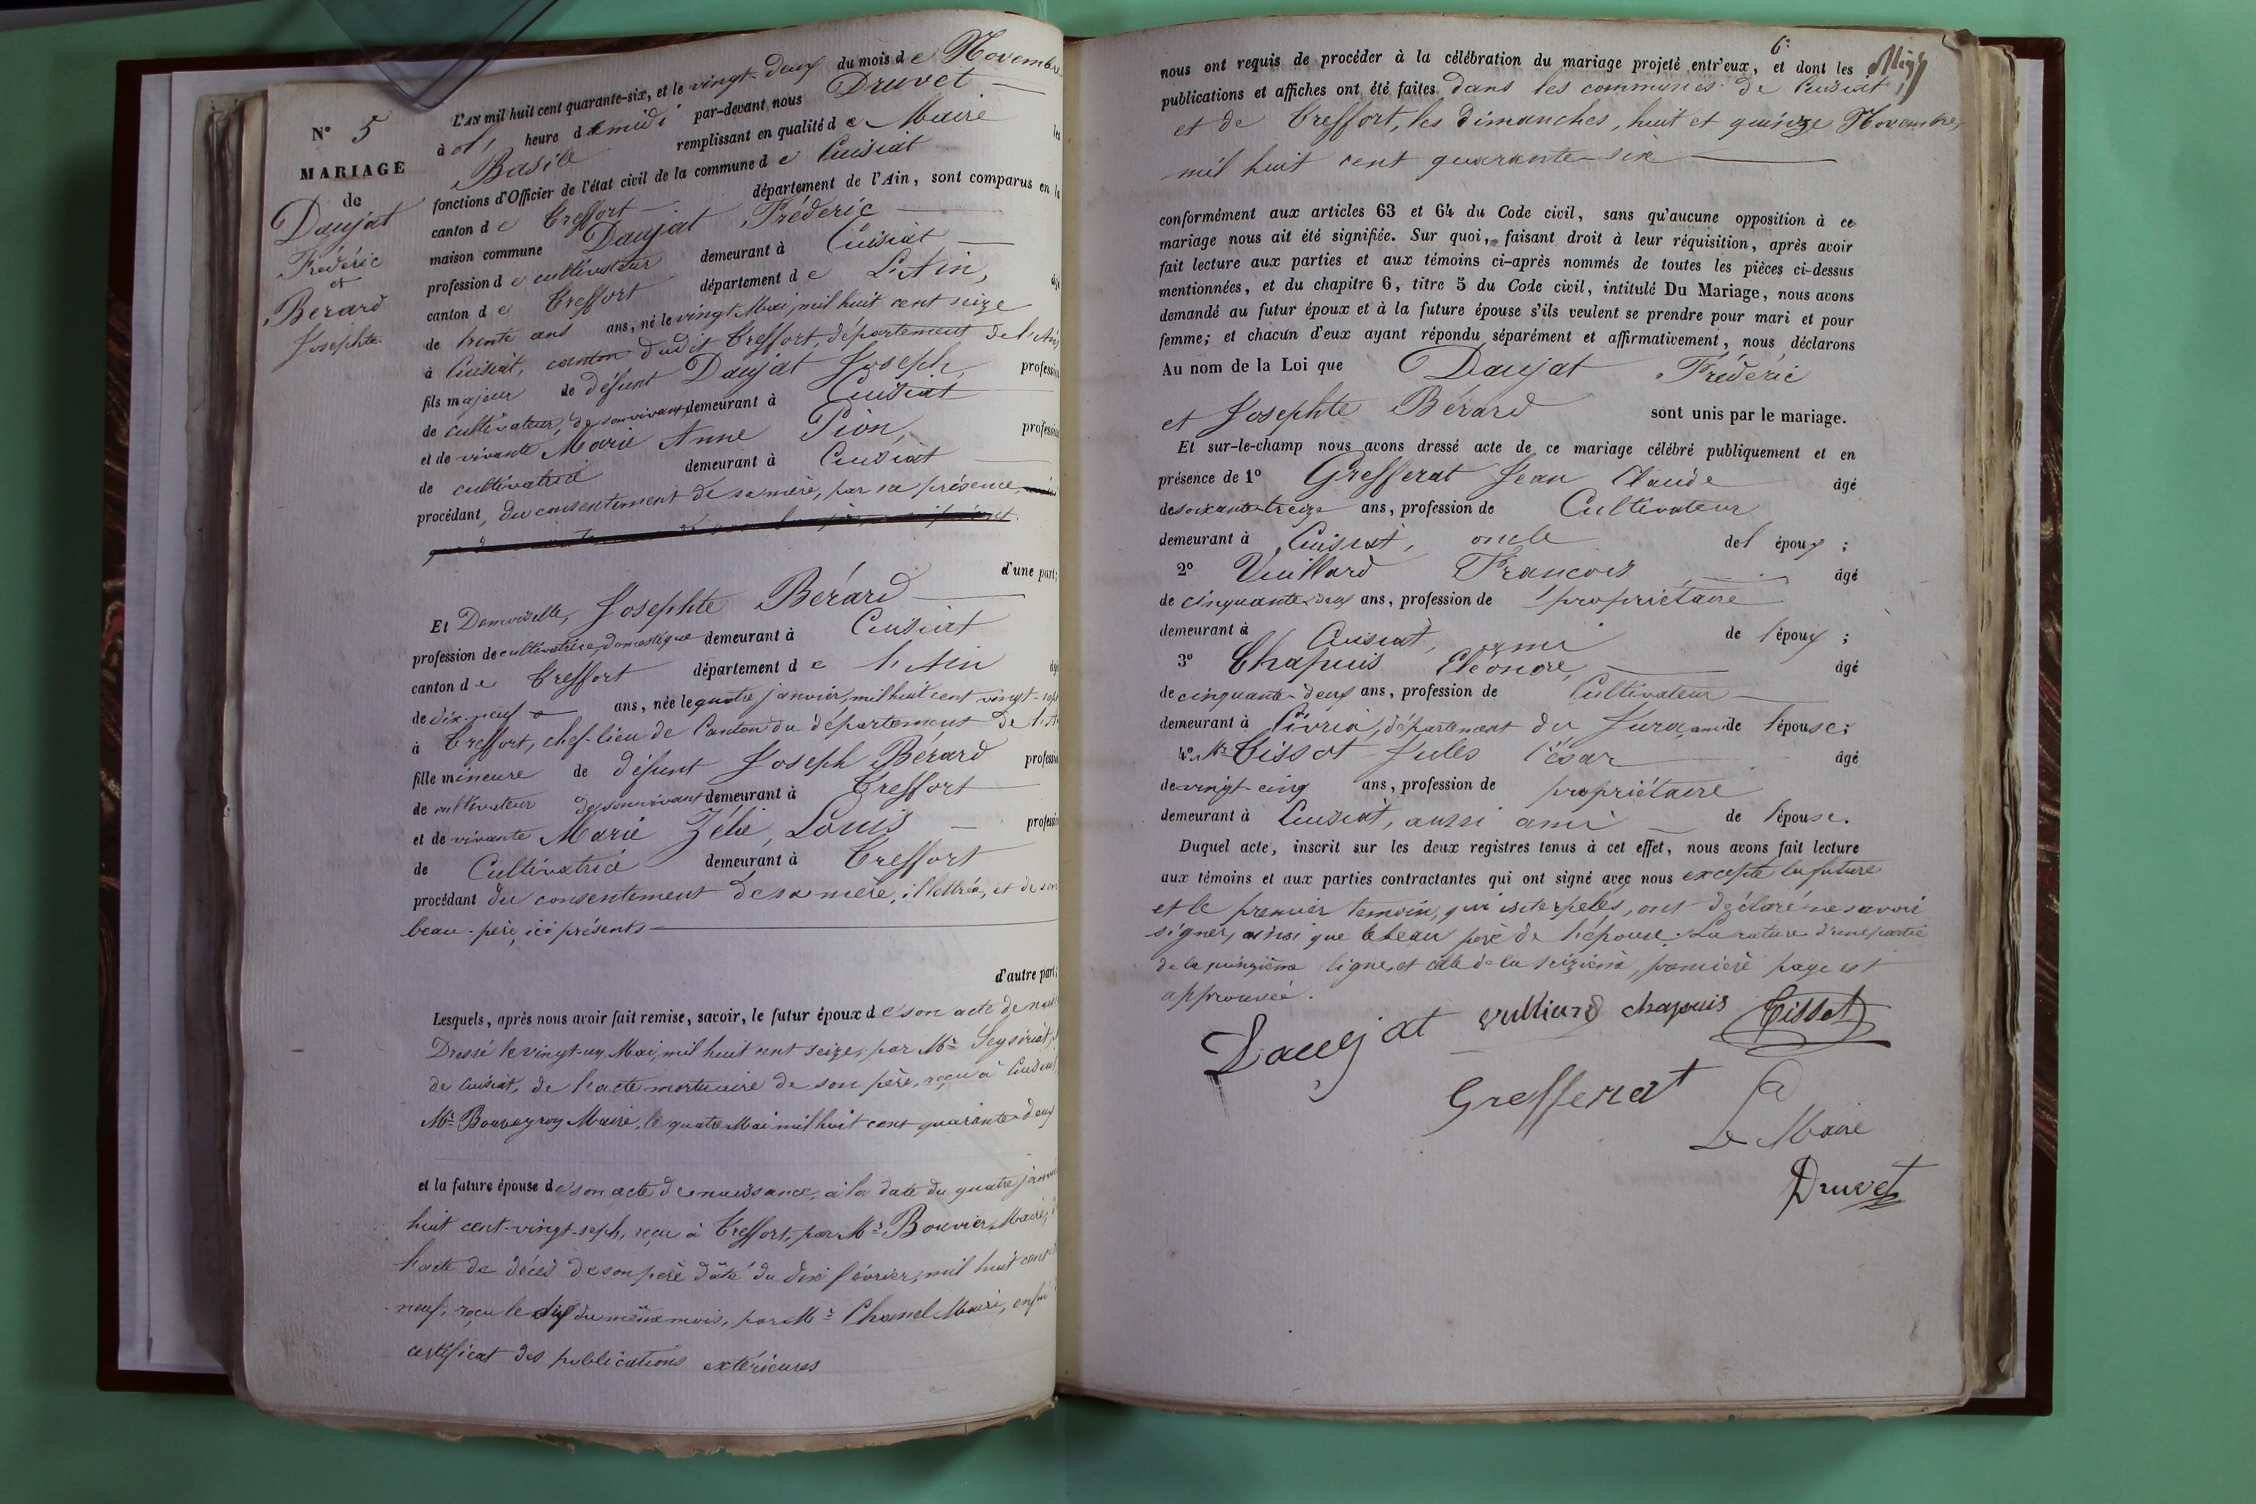 N° 5
MARIAGE
de
Daujat
Fréderic
et
Berard
Josephte
L'AN mil huit cent quarante-six, et le vingt-deux du mois de Novembre
à heure de midi par-devant nous Druvet
Basile remplissant en qualité de Maire les
fonctions d'Officier de l'état civil de la commune de Cuisiat
canton de Treffort département de l'Ain, sont comparus en la
maison commune Daujat Fréderic
profession de cultivateur demeurant à Cuisiat
canton de Treffort département de L'Ain, âgé
de trente ans ans, né le vingt Mai, mil huit cent seize
à Cuisiat, canton dudit Treffort, département de l'Ain
fils majeur de défunt Daujat Joseph, profession
de cultivateur, de son vivant demeurant à Cuisiat
et de vivante Marie Anne Pion, profession
de cultivatrice demeurant à Cuisiat
procédant, du consentement de sa mère, par sa présence,
d'une part;
Et Demoiselle, Josephte Bérard
profession de cultivatrice, domestique demeurant à Cuisiat
canton de Treffort département de l'Ain âgée
de dix-neuf ans, née le quatre janvier, mil huit cent vingt-sept
à Treffort, chef-lieu de Canton du département de l'Ain
fille mineure de défunt Joseph Bérard profession
de cultivateur de son vivant demeurant à Treffort
et de vivante Marie Zélie, Louis profession
de Cultivatrice demeurant à Treffort
procédant du consentement de sa mère, illettrée, et de son
beau-père, ici présents
d'autre part;
Lesquels, après nous avoir fait remise, savoir, le futur époux de son acte de
Dressé le vingt-un Mai, mil huit cent seize, par Mr
de Cuisiat, de l'acte mortuaire de son père, reçu à Cuisiat
Mr Bouveyron Maire, le quatre Mai mil huit cent quarante-deux
et la future épouse de son acte de naissance, à la date du quatre
huit cent-vingt-sept, reçu à Treffort, par Mr Bouvier, Maire,
l'acte de décès de son père dâté du dix février, mil huit cent
neuf, reçu le dix du même mois, par Mr Chanel Maire, enfin
certificat des publications extérieures
6e
nous ont requis de procéder à la célébration du mariage projeté entr'eux, et dont les
publications et affiches ont été faites dans les communes de Cuisiat,
et de Treffort, les dimanches, huit et quinze Novembre,
mil huit cent quarante-six
conformément aux articles 63 et 64 du Code civil, sans qu'aucune opposition à ce
mariage nous ait été signifiée. Sur quoi, faisant droit à leur réquisition, après avoir
fait lecture aux parties et aux témoins ci-après nommés de toutes les pièces ci-dessus
mentionnées, et du chapitre 6, titre 5 du Code civil, intitulé Du Mariage, nous avons
demandé au futur époux et à la future épouse s'ils veulent se prendre pour mari et pour
femme; et chacun d'eux ayant répondu séparément et affirmativement, nous déclarons
Au nom de la Loi que Daujat Fréderic
et Josephte Bérard sont unis par le mariage.
Et sur-le-champ nous avons dressé acte de ce mariage célébré publiquement et en
présence de 1° Grefferat Jean Claude âgé
de soixante-treize ans, profession de Cultivateur
demeurant à Cuisiat, oncle de l'époux;
2° Vuillard Francois âgé
de cinquante-deux ans, profession de propriétaire
demeurant à Cuisiat, ami de l'époux;
3° Chapuis Eléonore, âgé
de cinquante-deux ans, profession de Cultivateur
demeurant à Civria, département du Jura, ami de l'épouse;
4° Mr Tissot Jules César âgé
de vingt-cinq ans, profession de propriétaire
demeurant à Cuisiat, aussi ami de l'épouse.
Duquel acte, inscrit sur les deux registres tenus à cet effet, nous avons fait lecture
aux témoins et aux parties contractantes qui ont signé avec nous excepté la future
et le premier témoin, qui interpelés, ont déclaré ne savoir
signer, ainsi que le beau père de l'épouse. La rature d'une partie
de la quinzième ligne, et celle de la seizième, première page est
approuvée.
Daujat vulliard chapuis Tissot
Grefferat
Le Maire
Druvet